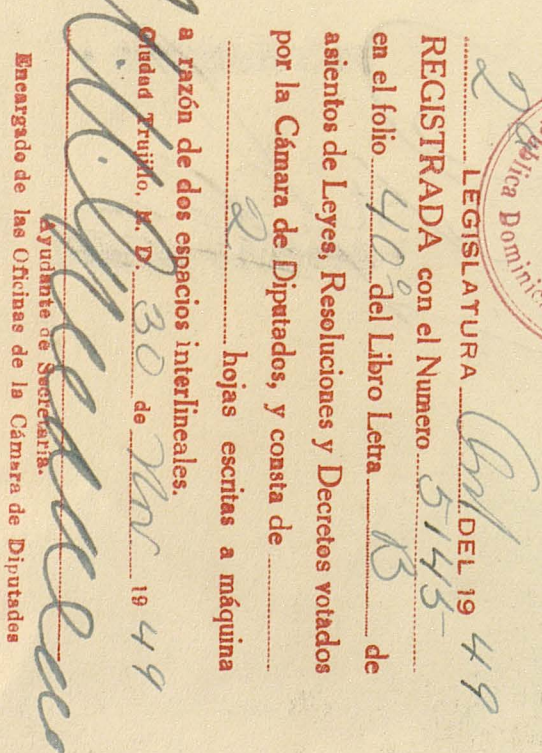 blica Dominic
2a LEGISLATURA Ord DEL 1949
REGISTRADA con el Numero 5145
en el folio 40 del Libro Letra B de
asientos de Leyes, Resoluciones y Decretos votados
por la Cámara de Diputados, y consta de
2 hojas escritas a máquina
a razón de dos espacios interlineales.
Ciudad Trujillo, R. D. 30 de Nov 1949
Ayudante de Secretaria.
Encargado de las Oficinas de la Cámara de Diputados